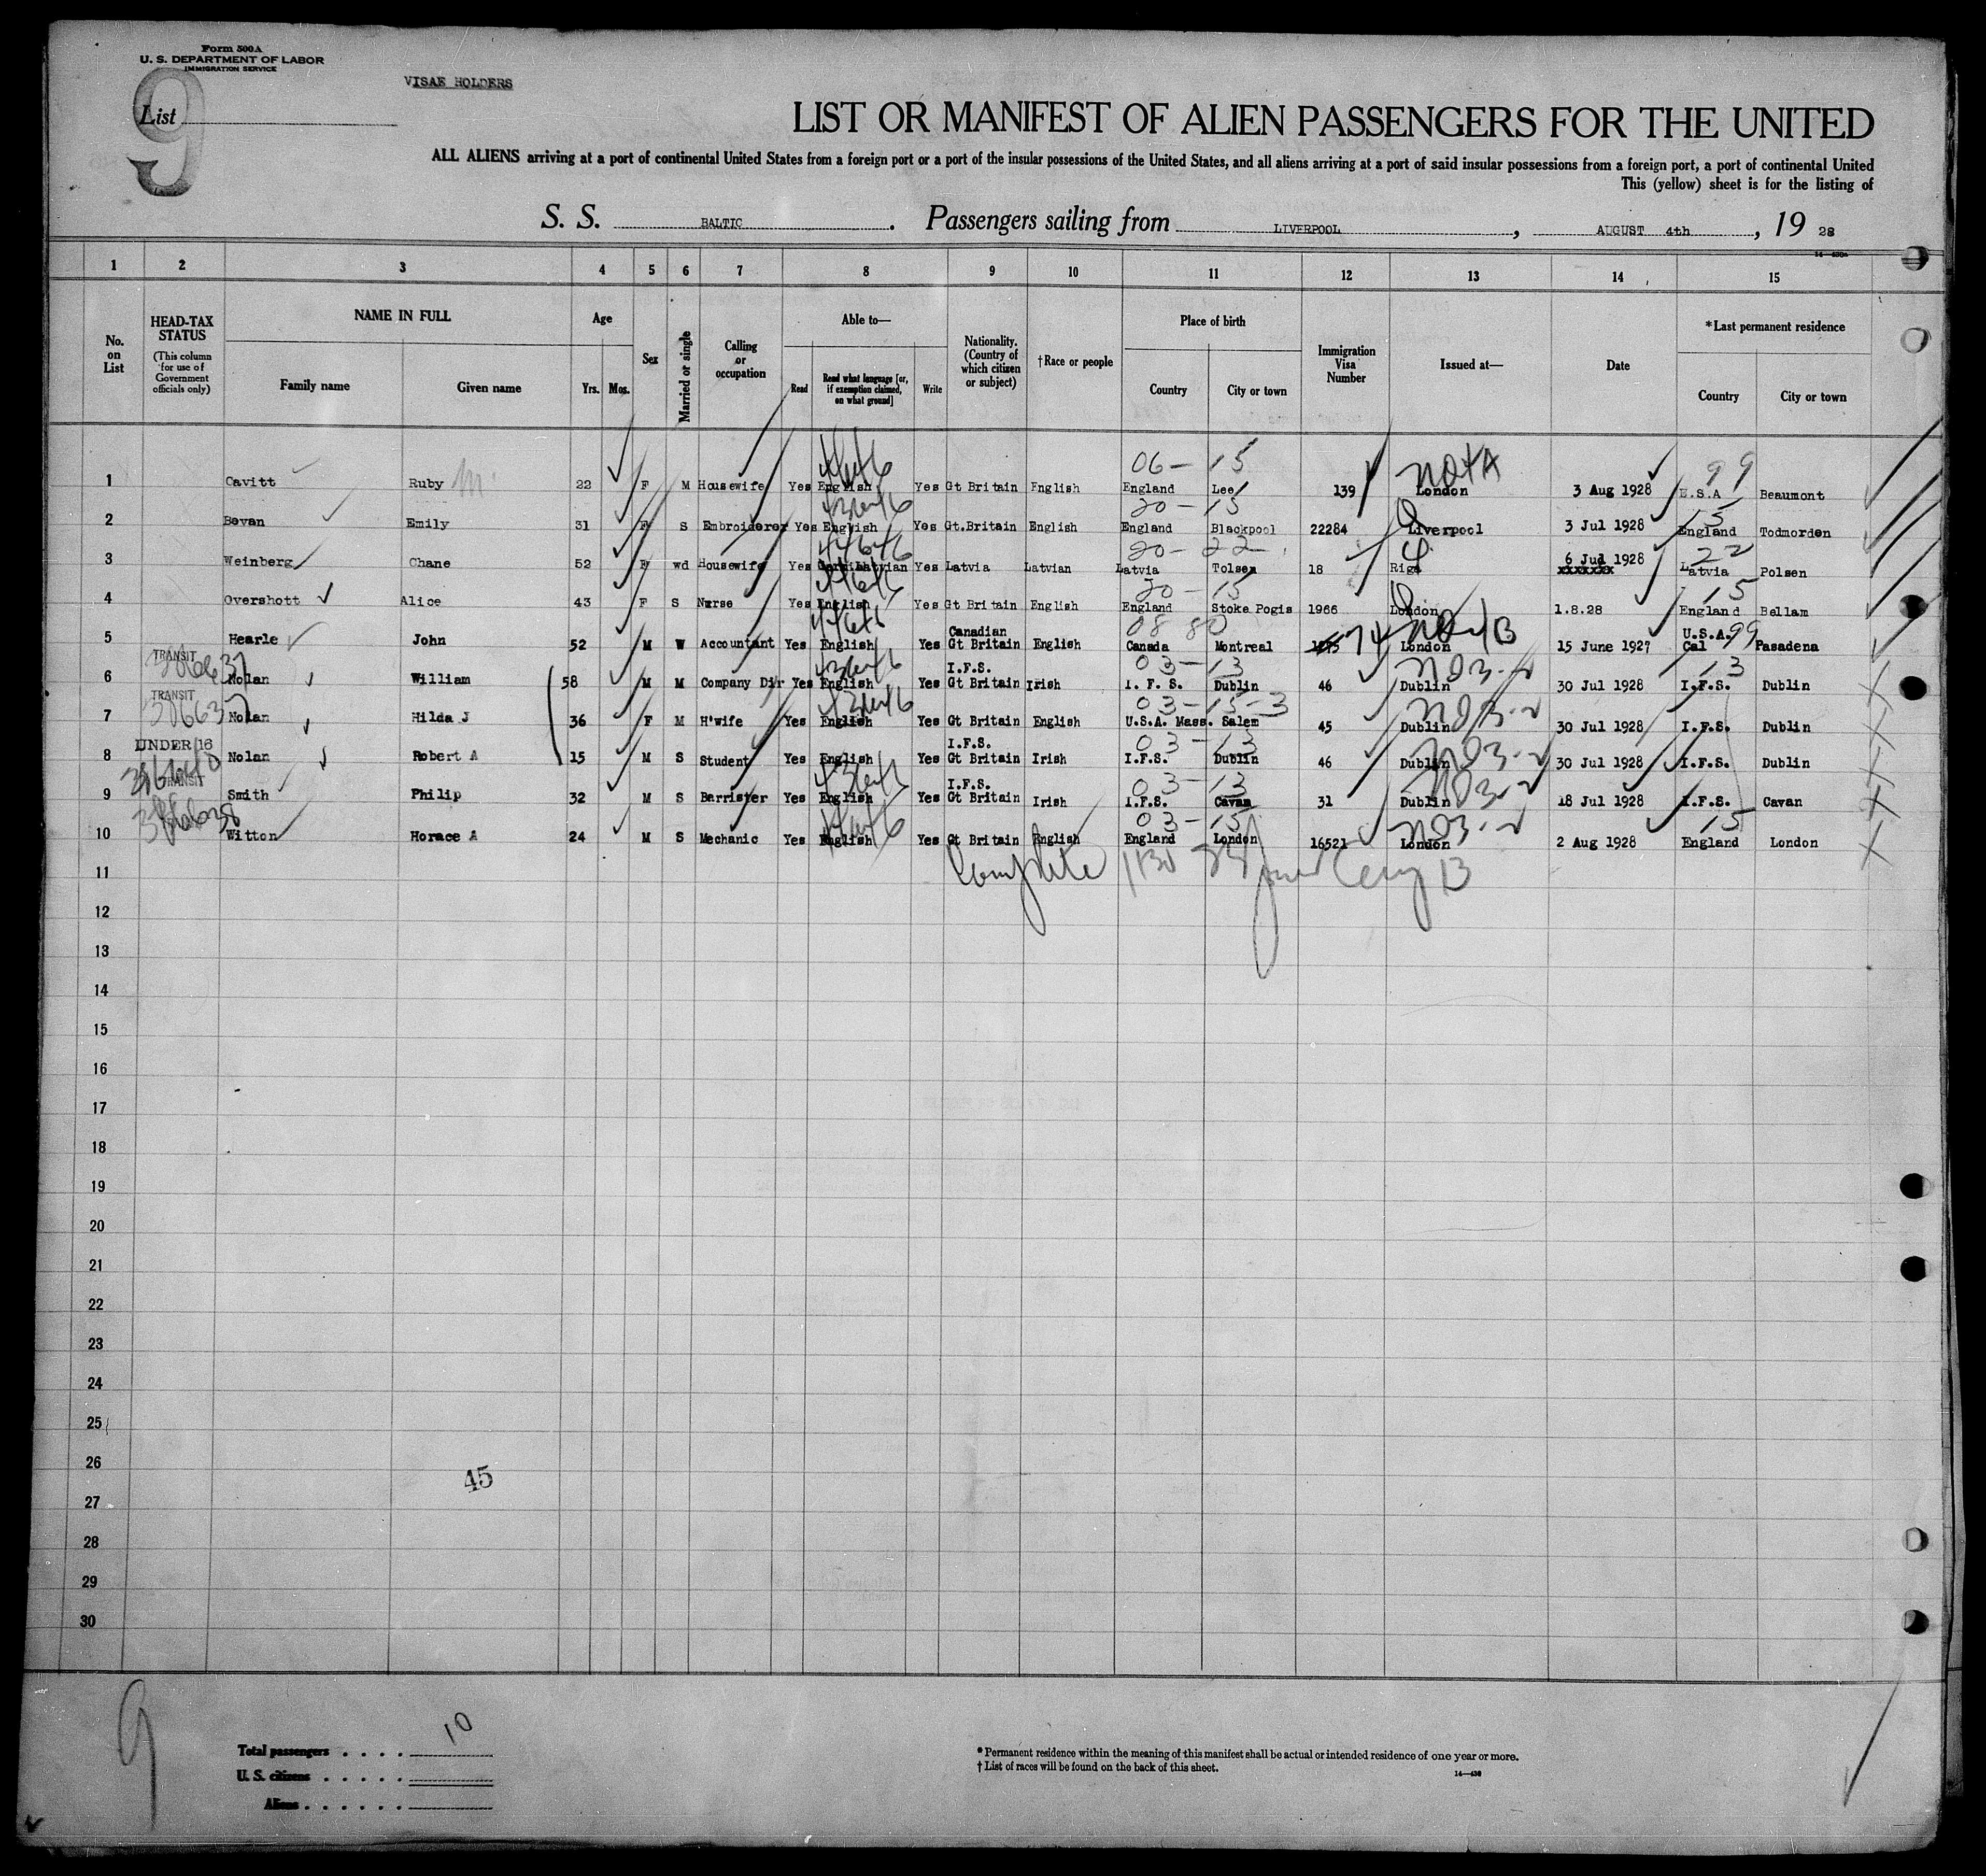 Form 500A
U. S. DEPARTMENT OF LABOR
IMMIGRATION SERVICE
VISAE HOLDERS
9
List
LIST OR MANIFEST OF ALIEN PASSENGERS FOR THE UNITED
ALL ALIENS arriving at a port of continental United States from a foreign port or a port of the insular possessions of the United States, and all aliens arriving at a port of said insular possessions from a foreign port, a port of continental United
This (yellow) sheet is for the listing of
S. S. BALTIC. Passengers sailing from LIVERPOOL, AUGUST 4th, 19 28
1 2 3 4 5 6 7 8 9 10 11 12 13 14 15
No. on List
HEAD-TAX STATUS (This column for use of Government officials only)
NAME IN FULL
Family name Given name
Age
Yrs. Mos.
Sex
Married or single
Calling or occupation
Able to—
Read
Read what language [or, if exemption claimed, on what ground]
Write
Nationality. (Country of which citizen or subject)
†Race or people
Place of birth
Country City or town
Immigration Visa Number
Issued at—
Date
*Last permanent residence
Country City or town
06 - 15 99
1 Cavitt Ruby 22 F M Housewife Yes English Yes Gt Britain English England Lee 139 London 3 Aug 1928 U.S.A Beaumont
20 - 15 15
2 Bevan Emily 31 F S Embroiderer Yes English Yes Gt.Britain English England Blackpool 22284 Liverpool 3 Jul 1928 England Todmorden
20 - 22 22
3 Weinberg Chane 52 F wd Housewife Yes Yes Latvia Latvian Latvia Tolsen 18 Riga 6 Jul 1928 Latvia Polsen
20 - 15 15
4 Overshott Alice 43 F S Nurse Yes English Yes Gt Britain English England Stoke Pogis 1966 London 1.8.28 England Bellam
08 80 99
5 Hearle John 52 M W Accountant Yes English Yes Canadian Gt Britain English Canada Montreal 74 London 15 June 1927 U.S.A. Cal Pasadena
TRANSIT 03 - 13 NO3-2 13
6 Nolan William 58 M M Company Dir Yes English Yes I.F.S. Gt Britain Irish I. F. S. Dublin 46 Dublin 30 Jul 1928 I.F.S. Dublin
TRANSIT 03 - 15 - 3 NO3-2
7 Nolan Hilda J 36 F M H'wife Yes English Yes Gt Britain English U.S.A. Mass. Salem 45 Dublin 30 Jul 1928 I.F.S. Dublin
UNDER 16 03 - 13 NO3-2
8 Nolan Robert A 15 M S Student Yes English Yes I.F.S. Gt Britain Irish I.F.S. Dublin 46 Dublin 30 Jul 1928 I.F.S. Dublin
TRANSIT 03 - 13 NO3-2
9 Smith Philip 32 M S Barrister Yes English Yes I.F.S. Gt Britain Irish I.F.S. Cavan 31 Dublin 18 Jul 1928 I.F.S. Cavan
03 - 15 NO3-2 15
10 Witton Horace A 24 M S Mechanic Yes English Yes Gt Britain English England London 16521 London 2 Aug 1928 England London
11 Complete
12
13
14
15
16
17
18
19
20
21
22
23
24
25
26
45
27
28
29
30
9
Total passengers . . . . 10
U. S. citizens . . . . .
Aliens . . . . . .
* Permanent residence within the meaning of this manifest shall be actual or intended residence of one year or more.
† List of races will be found on the back of this sheet.
14—438